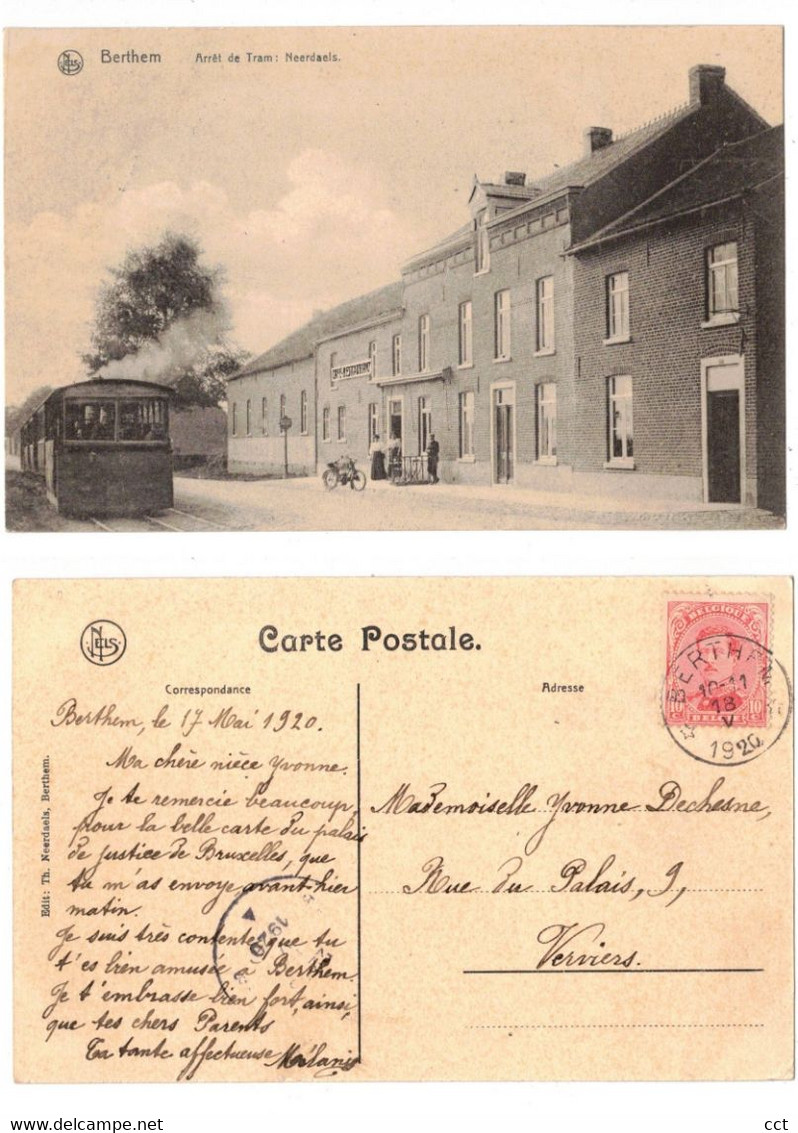 NELS
Berthem Arrêt de Tram: Neerdaels.
NELS
Carte Postale.
Correspondance
Adresse
BELGIQUE
10 c 10 c
BELGIË
BERTHEM
10-11
18
V
1920
Edit: Th. Neerdaels, Berthem.
Berthem, le 17 Mai 1920.
Ma chère nièce Yvonne.
Je te remercie beaucoup,
pour la belle carte du palais
de justice de Bruxelles, que
tu m'as envoye avant-hier
matin.
Je suis très contente que tu
t'es bien amusée à Berthem.
Je t'embrasse bien fort, ainsi,
que tes chers Parents
Ta tante affectueuse Mélanie
Mademoiselle Yvonne Dechesne,
Rue du Palais, 9,
Verviers.
1920
cct
Copyright : Delcampe.net